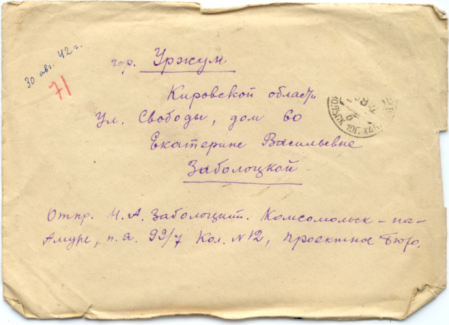 30 авг. 42 г.
71
гор. Уржум
Кировской область
Ул. Свободы, дом 60
Екатерине Васильевне
Заболоцкой
Отпр. Н. А. Заболоцкий. Комсомольск-на-
Амуре, п. я. 99/7 Кол. №12, Проектное Бюро.